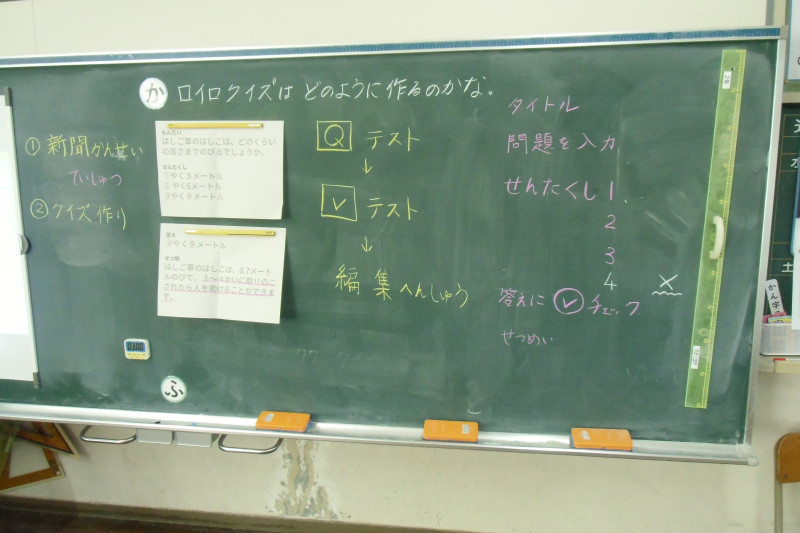 か ロイロクイズは どのように作るのかな。
① 新聞かんせい
ていしゅつ
② クイズ作り
もんだい
はしご車のはしごは、どのくらい
の高さまでのびるでしょうか。
せんたくし
①やく3メートル
②やく6メートル
③やく9メートル
答え
③やく9メートル
せつ明
はしご車のはしごは、8.7メート
ルのびて、3〜4かいに取りのこ
されたら人を助けることができま
す。
Q テスト
↓
✓ テスト
↓
編集 へんしゅう
タイトル
問題を入力
せんたくし 1.
2
3
4
答えに ✓ チェック
せつめい
ふ
かん字